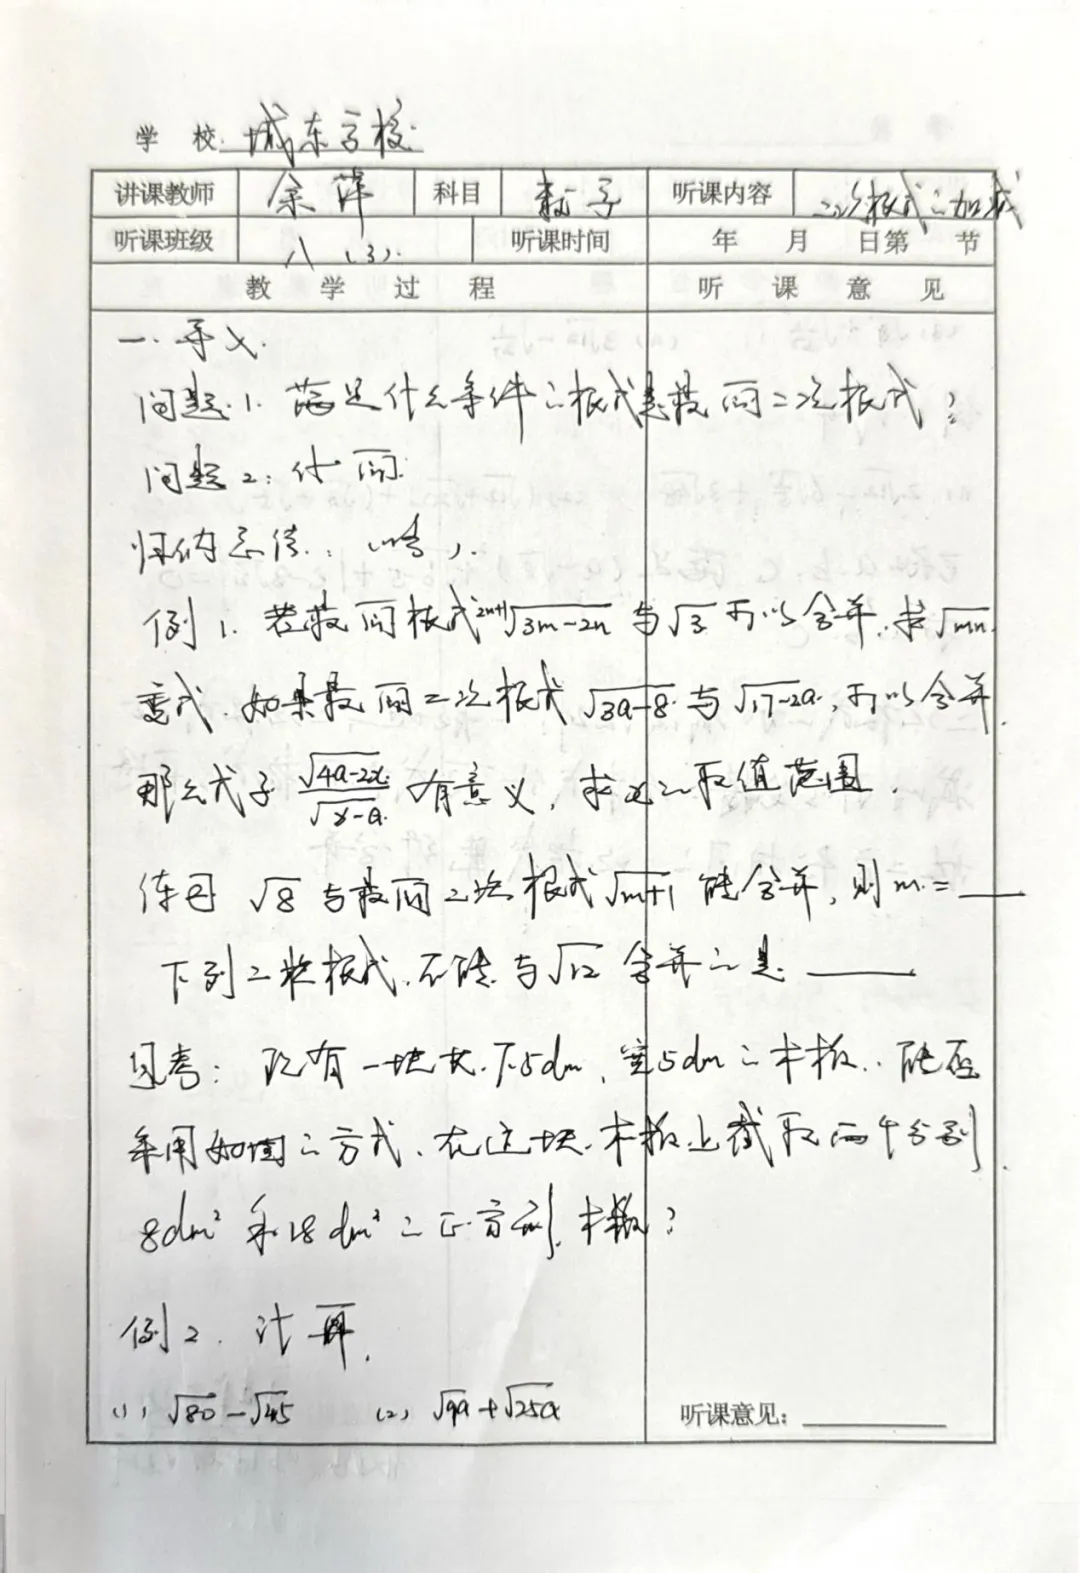 学 校: 城东学校
讲课教师 余萍 科目 数学 听课内容 二次根式的加减
听课班级 八（3）. 听课时间 年 月 日第 节
教 学 过 程 听 课 意 见
一. 导入.
问题1. 满足什么条件的根式是最简二次根式?
问题2: 化简.
归纳总结:
例1. 若最简根式 ²ᵐ⁺¹√3m-2n 与√3 可以合并. 求√mn.
变式. 如果最简二次根式 √3a-8 与 √17-2a, 可以合并.
那么式子 √4a-2x/√x-a 有意义, 求x的取值范围.
练习 √8 与最简二次根式√m+1 能合并, 则m=___
下列二次根式, 不能与√12 合并的是 ____
思考: 现有一块长7.5dm, 宽5dm的木板. 能否
采用如图的方式, 在这块木板上截取两个分别
8dm² 和18dm² 的正方形木板?
例2. 计算.
(1) √80-√45 (2) √9a+√25a
听课意见: ______